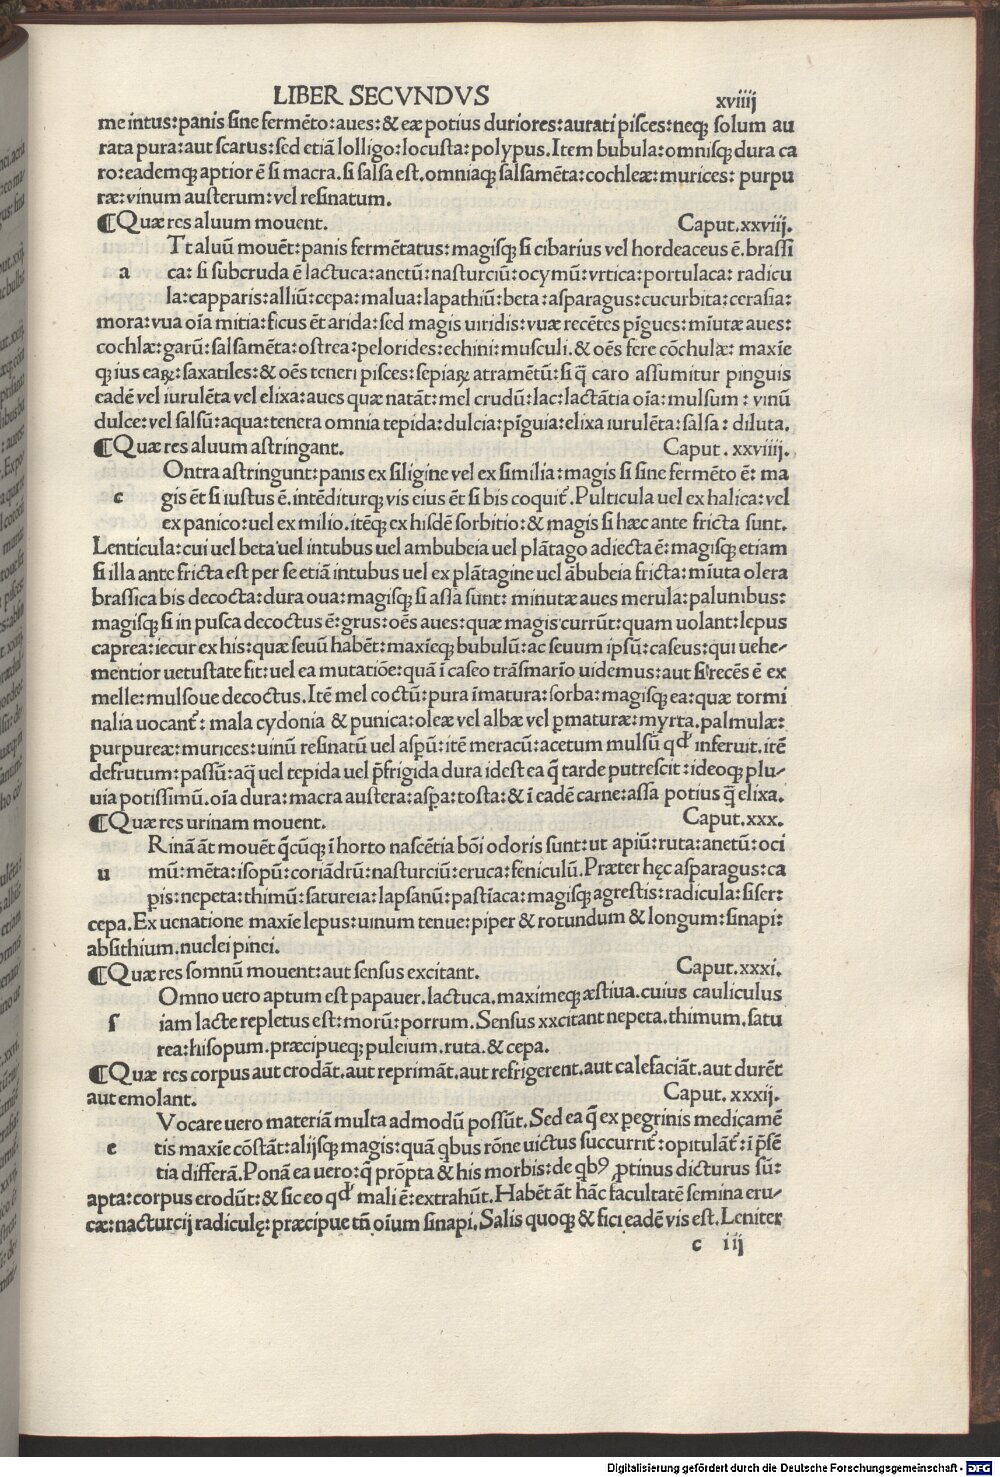 LIBER SECVNDVS xviiij
me intus:panis sine fermēto:aues:& eæ potius duriores:aurati pisces:neqꝫ solum au
rata pura:aut scarus:sed etiā lolligo:locusta:polypus.Item bubula:omnisqꝫ dura ca
ro:eademqꝫ aptior ē si macra.si salsa est.omniaqꝫ salsamēta:cochleæ:murices: purpu
ræ:vinum austerum:vel resinatum.
¶Quæ res aluum mouent. Caput.xxviij.
Tt aluū mouēt:panis fermētatus:magisqꝫ si cibarius vel hordeaceus ē.brassi
a ca: si subcruda ē lactuca:anetū:nasturciū:ocymū:vrtica:portulaca: radicu
la:capparis:alliū:cepa:malua:lapathiū:beta:asparagus:cucurbita:cerasia:
mora:vua oīa mitia:ficus ēt arida:sed magis uiridis:vuæ recētes pīgues:mīutæ aues:
cochlæ:garū:salsamēta:ostrea:pelorides:echini:musculi.& oēs fere cōchulæ: maxīe
qꝫ ius eaꝝ:saxatiles:& oēs teneri pisces:sepiaꝝ atramētū:si q̄ caro assumitur pinguis
eadē vel iurulēta vel elixa:aues quæ natāt:mel crudū:lac:lactātia oīa:mulsum : vinū
dulce:vel salsū:aqua:tenera omnia tepida:dulcia:pīguia:elixa iurulēta:salsa: diluta.
¶Quæ res aluum astringant. Caput . xxviiij.
Ontra astringunt:panis ex siligine vel ex similia:magis si sine fermēto ē: ma
c gis ēt si iustus ē.intēditurqꝫ vis eius ēt si bis coquit̄.Pulticula uel ex halica:vel
ex panico:uel ex milio.itēqꝫ ex hisdē sorbitio:& magis si hæc ante fricta sunt.
Lenticula:cui uel beta uel intubus uel ambubeia uel plātago adiecta ē:magisqꝫ etiam
si illa ante fricta est per se etiā intubus uel ex plātagine uel ābubeia fricta:mīuta olera
brassica bis decocta:dura oua:magisqꝫ si assa sunt: minutæ aues merula:palumbus:
magisqꝫ si in pusca decoctus ē:grus:oēs aues:quæ magis currūt:quam uolant:lepus
caprea:iecur ex his:quæ seuū habēt:maxieqꝫ bubulū:ac seuum ipsū:caseus:qui uehe-
mentior uetustate fit:uel ea mutatiōe:quā ī caseo trāsmarīo uidemus:aut si recēs ē ex
melle:mulsoue decoctus.Itē mel coctū:pura īmatura:sorba:magisqꝫ ea:quæ tormi
nalia uocant̄: mala cydonia & punica:oleæ vel albæ vel pmaturæ:myrta.palmulæ:
purpureæ:murices:uinū resinatū uel aspū:itē meracū:acetum mulsū qđ inferuit.itē
defrutum:passū:aq̄ uel tepida uel p̄frigida dura idest ea q̄ tarde putrescit:ideoqꝫ plu-
uia potissimū.oīa dura:macra austera:aspa:tosta:& ī eadē carne:assa potius q̄ elixa.
¶Quæ res urinam mouent. Caput.xxx.
Rinā āt mouēt q̄cūqꝫ ī horto nascētia bōi odoris sunt:ut apiū:ruta:anetū:oci
u mū:mēta:isopū:coriādrū:nasturciū:eruca:feniculū.Præter hęc asparagus:ca
pis:nepeta:thimū:satureia:lapsanū:pastīaca:magisqꝫ agrestis:radicula:siser:
cepa.Ex uenatione maxīe lepus:uinum tenue:piper & rotundum & longum:sinapi:
absithium.nuclei pinei.
¶Quæ res somnū mouent:aut sensus excitant. Caput.xxxi.
Omno uero aptum est papauer.lactuca.maximeqꝫ æstiua.cuius cauliculus
s iam lacte repletus est:morū:porrum.Sensus xxcitant nepeta.thimum.satu
rea:hisopum.præcipueqꝫ puleium.ruta.& cepa.
¶Quæ res corpus aut erodāt.aut reprimāt.aut refrigerent.aut calefaciāt.aut durēt
aut emolant. Caput.xxxij.
Vocare uero materiā multa admodū possūt.Sed ea q̄ ex pegrinis medicamē
e tis maxīe cōstāt:alijsqꝫ magis:quā qbus rōne uictus succurrit̄:opitulāt̄:ī p̄sē
tia differā.Ponā ea uero:q̄ prōpta & his morbis:de qbꝰ ꝓtinus dicturus sū:
apta:corpus erodūt:& sic eo qđ mali ē:extrahūt.Habēt āt hāc facultatē semina eru-
cæ:nacturcij radiculę:præcipue tn̄ oīum sinapi.Salis quoqꝫ & fici eadē vis est.Leniter
c iij
Digitalisierung gefördert durch die Deutsche Forschungsgemeinschaft - DFG